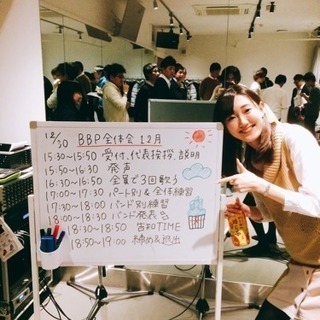 12/30 BBP全体会 12月
15:30~15:50 受付、代表挨拶、説明
15:50~16:30 発声
16:30~16:50 全景で3回歌う
17:00~17:30 パート別&全体練習
17:30~18:00 バンド別練習
18:00~18:30 バンド発表
18:30~18:50 告知TIME
18:50~19:00 締め&退出